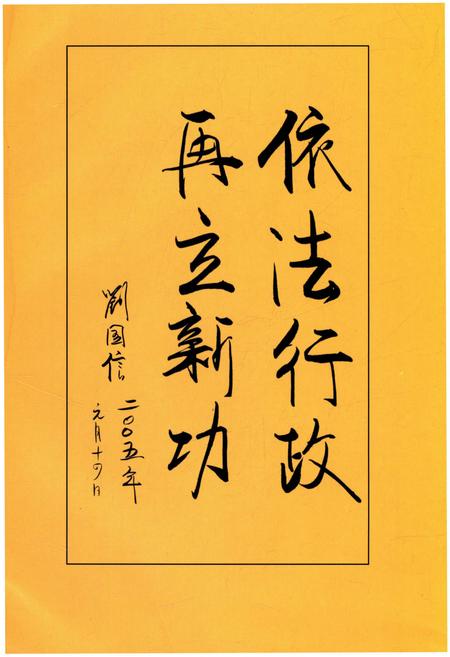 依法行政
再立新功
劉国信
二〇〇五年
元月十四日